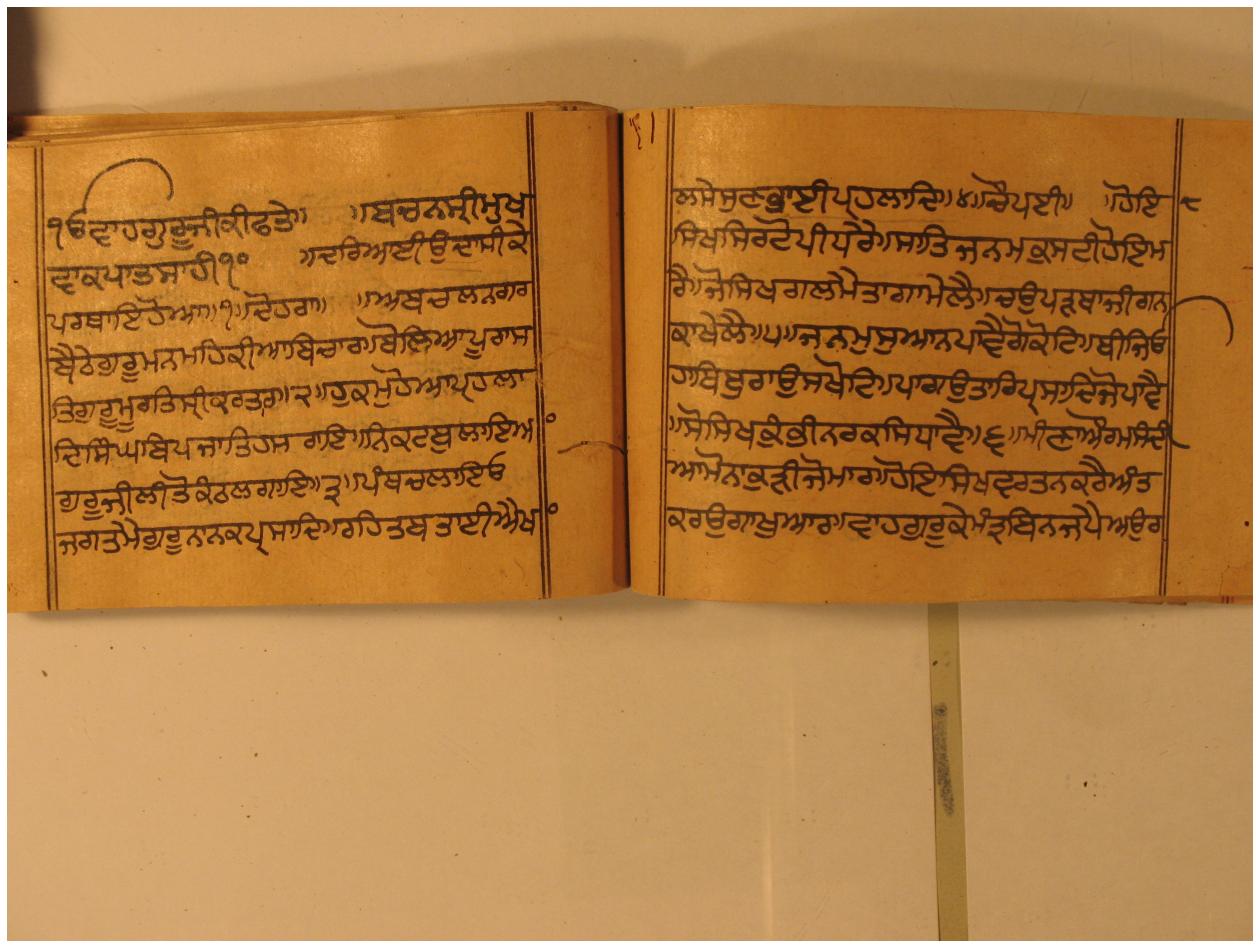 ੴਵਾਹਗੁਰੂਜੀਕੀਫਤੇ॥ ॥ਬਚਨਸ੍ਰੀਮੁਖ
ਵਾਕਪਾਤਸਾਹੀ੧੦ ॥ਦਰਿਆਈਉਦਾਸੀਕੇ
ਪਰਥਾਇਹੋਆ॥੧॥ਦੋਹਰਾ॥ ॥ਅਬਚਲਨਗਰ
ਬੈਠੇਗੁਰੂਮਨਮਹਿਕੀਆਬਿਚਾਰ॥ਬੋਲਿਆਪੂਰਾਸ
ਤਿਗੁਰੂਮੂਰਤਿਸ੍ਰੀਕਰਤਾਰ॥੨॥ਹੁਕਮੁਹੋਆਪ੍ਰਹਲਾ
ਦਿਸਿੰਘਾਬਿਪਜਾਤਿਹਸਰਾਇ॥ਨਿਕਟਬੁਲਾਇਅ
ਗੁਰੂਜੀਲੀਤੋਕੰਠਲਗਾਇ॥੩॥ਪੰਥਚਲਾਇਓ
ਜਗਤਮੇਮੈਗੁਰੂਨਾਨਕਪ੍ਰਸਾਦਿ॥ਰਹਿਤਬਤਾਈਐਖ
੧
ਲਸੇਸੁਣਭਾਈਪ੍ਰਹਲਾਦਿ॥੪॥ਚੌਪਈ॥ ॥ਹੋਇ
ਸਿਖਸਿਰਟੋਪੀਧਰੈ॥ਸਾਤਜਨਮਕੁਸਟੀਹੋਇਮ
ਰੈ॥ਜੋਸਿਖਗਲਮੈਤਾਗਾਮੇਲੈ॥ਚਉਪੜਬਾਜੀਗਨ
ਕਾਖੇਲੈ॥੫॥ਜਨਮੁਸੁਆਨਪਾਵੈਗੋਕੋਟਿ॥ਬੀਜਿਓ
ਹਾਥਿਬੁਰਾਉਸਖੋਟਿ॥ਪਾਗਉਤਾਰਿਪ੍ਰਸਾਦਿਜੋਪਾਵੈ
॥ਸੋਸਿਖਕੁੰਭੀਨਰਕਸਿਧਾਵੈ॥੬॥ਮੀਣਾਔਰਮਸੰਦੀ
ਆਮੋਨਾਕੁੜੀਜੋਮਾਰ॥ਹੋਇਸਿਖਵਰਤਨਕਰੈਅੰਤ
ਕਰਉਗਾਖੁਆਰ॥ਵਾਹਗੁਰੂਕੇਮੰਤ੍ਰਬਿਨਜਪੈਅਉਰ